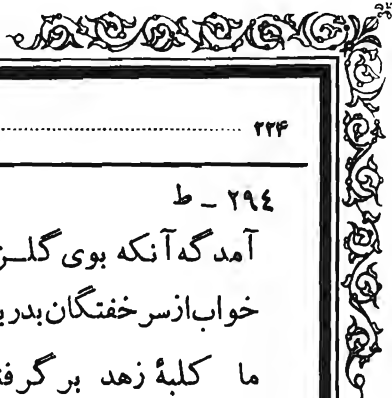 ۲۲۴
۲۹٤ – ط
آمد گه آنکه بوی گلـز
خواب از سر خفتگان بدر
ما کلبهٔ زهد بر گرفت